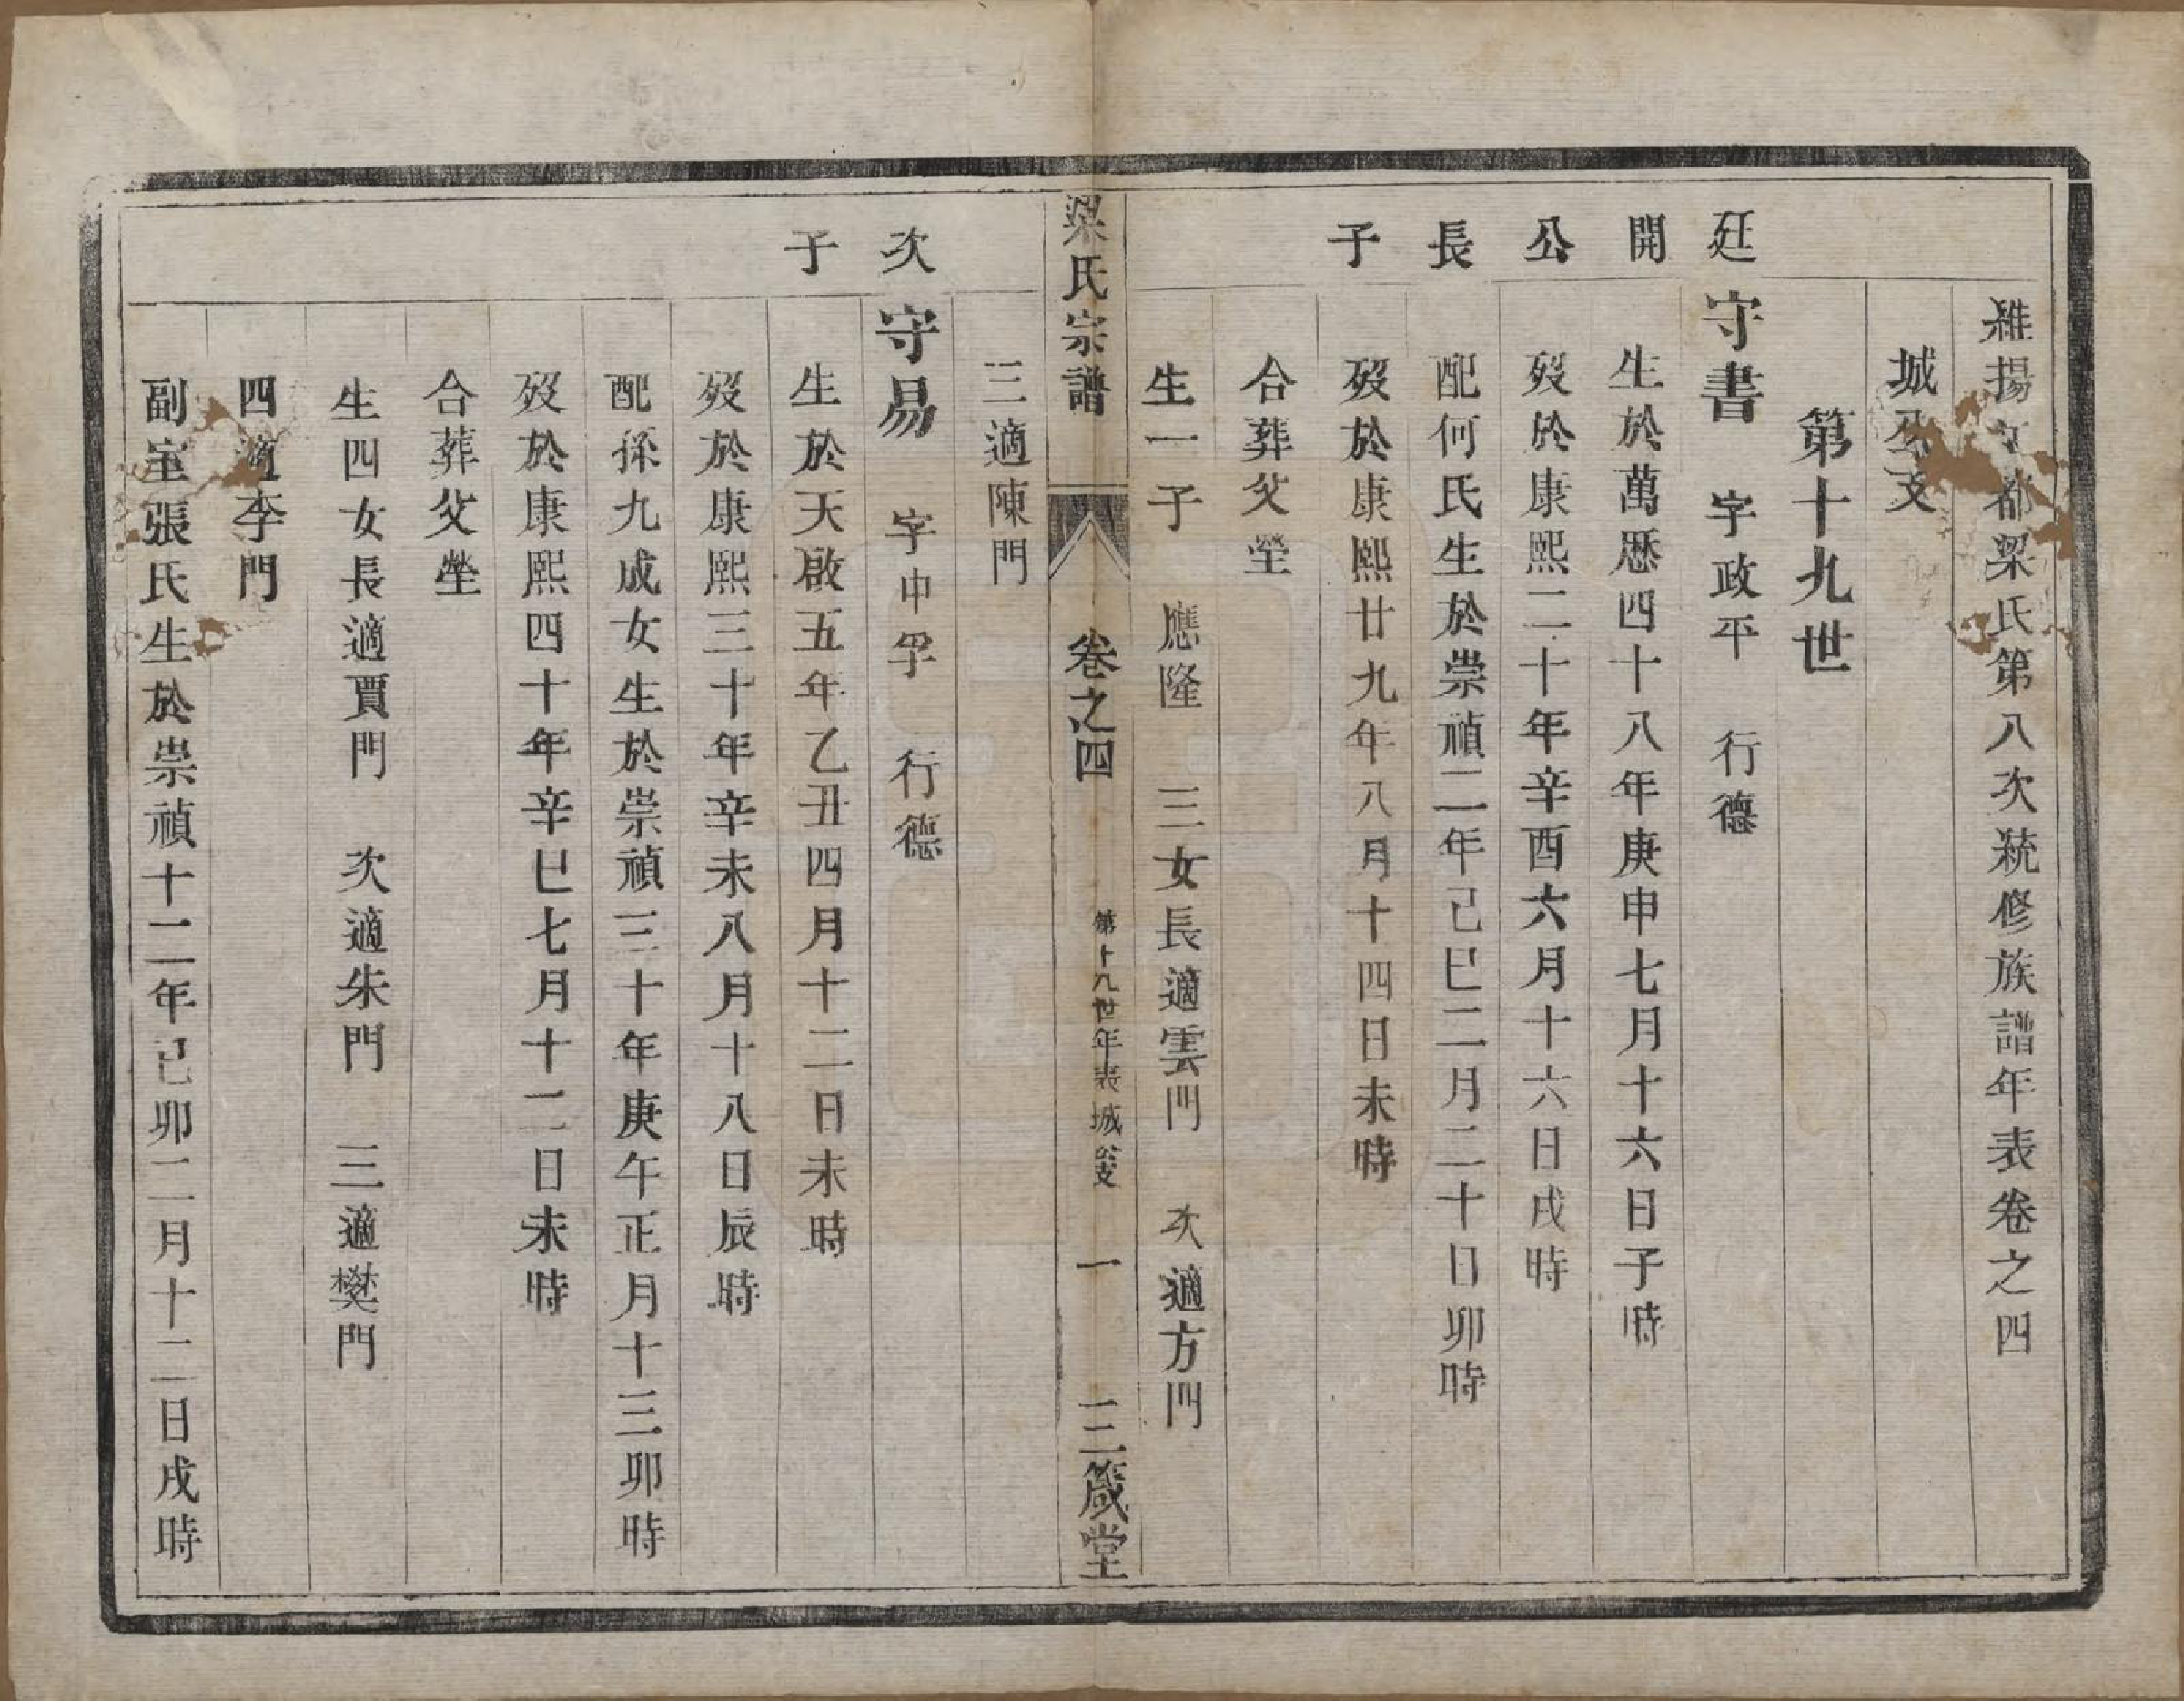 維揚江都梁氏第八次統修族譜年表卷之四
城公支
第十九世
廷開公長子
守書　字政平　行德
生於萬厯四十八年庚申七月十六日子時
歿於康熙二十年辛酉六月十六日戌時
配何氏生於崇禎二年己巳二月二十日卯時
歿於康熙廿九年八月十四日未時
合葬父塋
生一子　應隆　三女長適雲門　次適方門
梁氏宗譜　卷之四　第十九世年表城公支　一　三箴堂
三適陳門
次子
守易　字中孚　行德
生於天啟五年乙丑四月十二日未時
歿於康熙三十年辛未八月十八日辰時
配孫九成女生於崇禎三十年庚午正月十三卯時
歿於康熙四十年辛巳七月十二日未時
合葬父塋
生四女長適賈門　次適朱門　三適樊門
四適李門
副室張氏生於崇禎十二年己卯二月十二日戌時